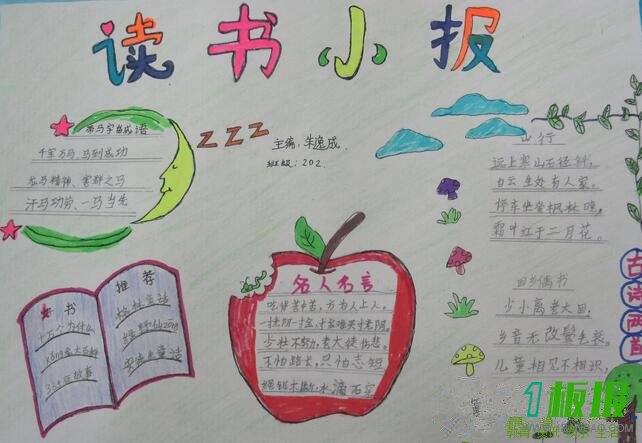 读书小报
带马字的成语
千军万马、马到成功
龙马精神、害群之马
汗马功劳、一马当先
主编：朱逸成
班级：202.
山行
远上寒山石径斜，
白云生处有人家。
停车坐爱枫林晚，
霜叶红于二月花。
回乡偶书
少小离老大回，
乡音无改鬓毛衰。
儿童相见不相识，
古诗两首
名人名言
吃得苦中苦，方为人上人。
一寸光阴一寸金，寸金难买寸光阴。
少壮不努力，老大徒伤悲。
不怕路长，只怕志短
绳锯木断，水滴石穿
书
十万个为什么
推荐
格林童话
安徒生童话
1板报